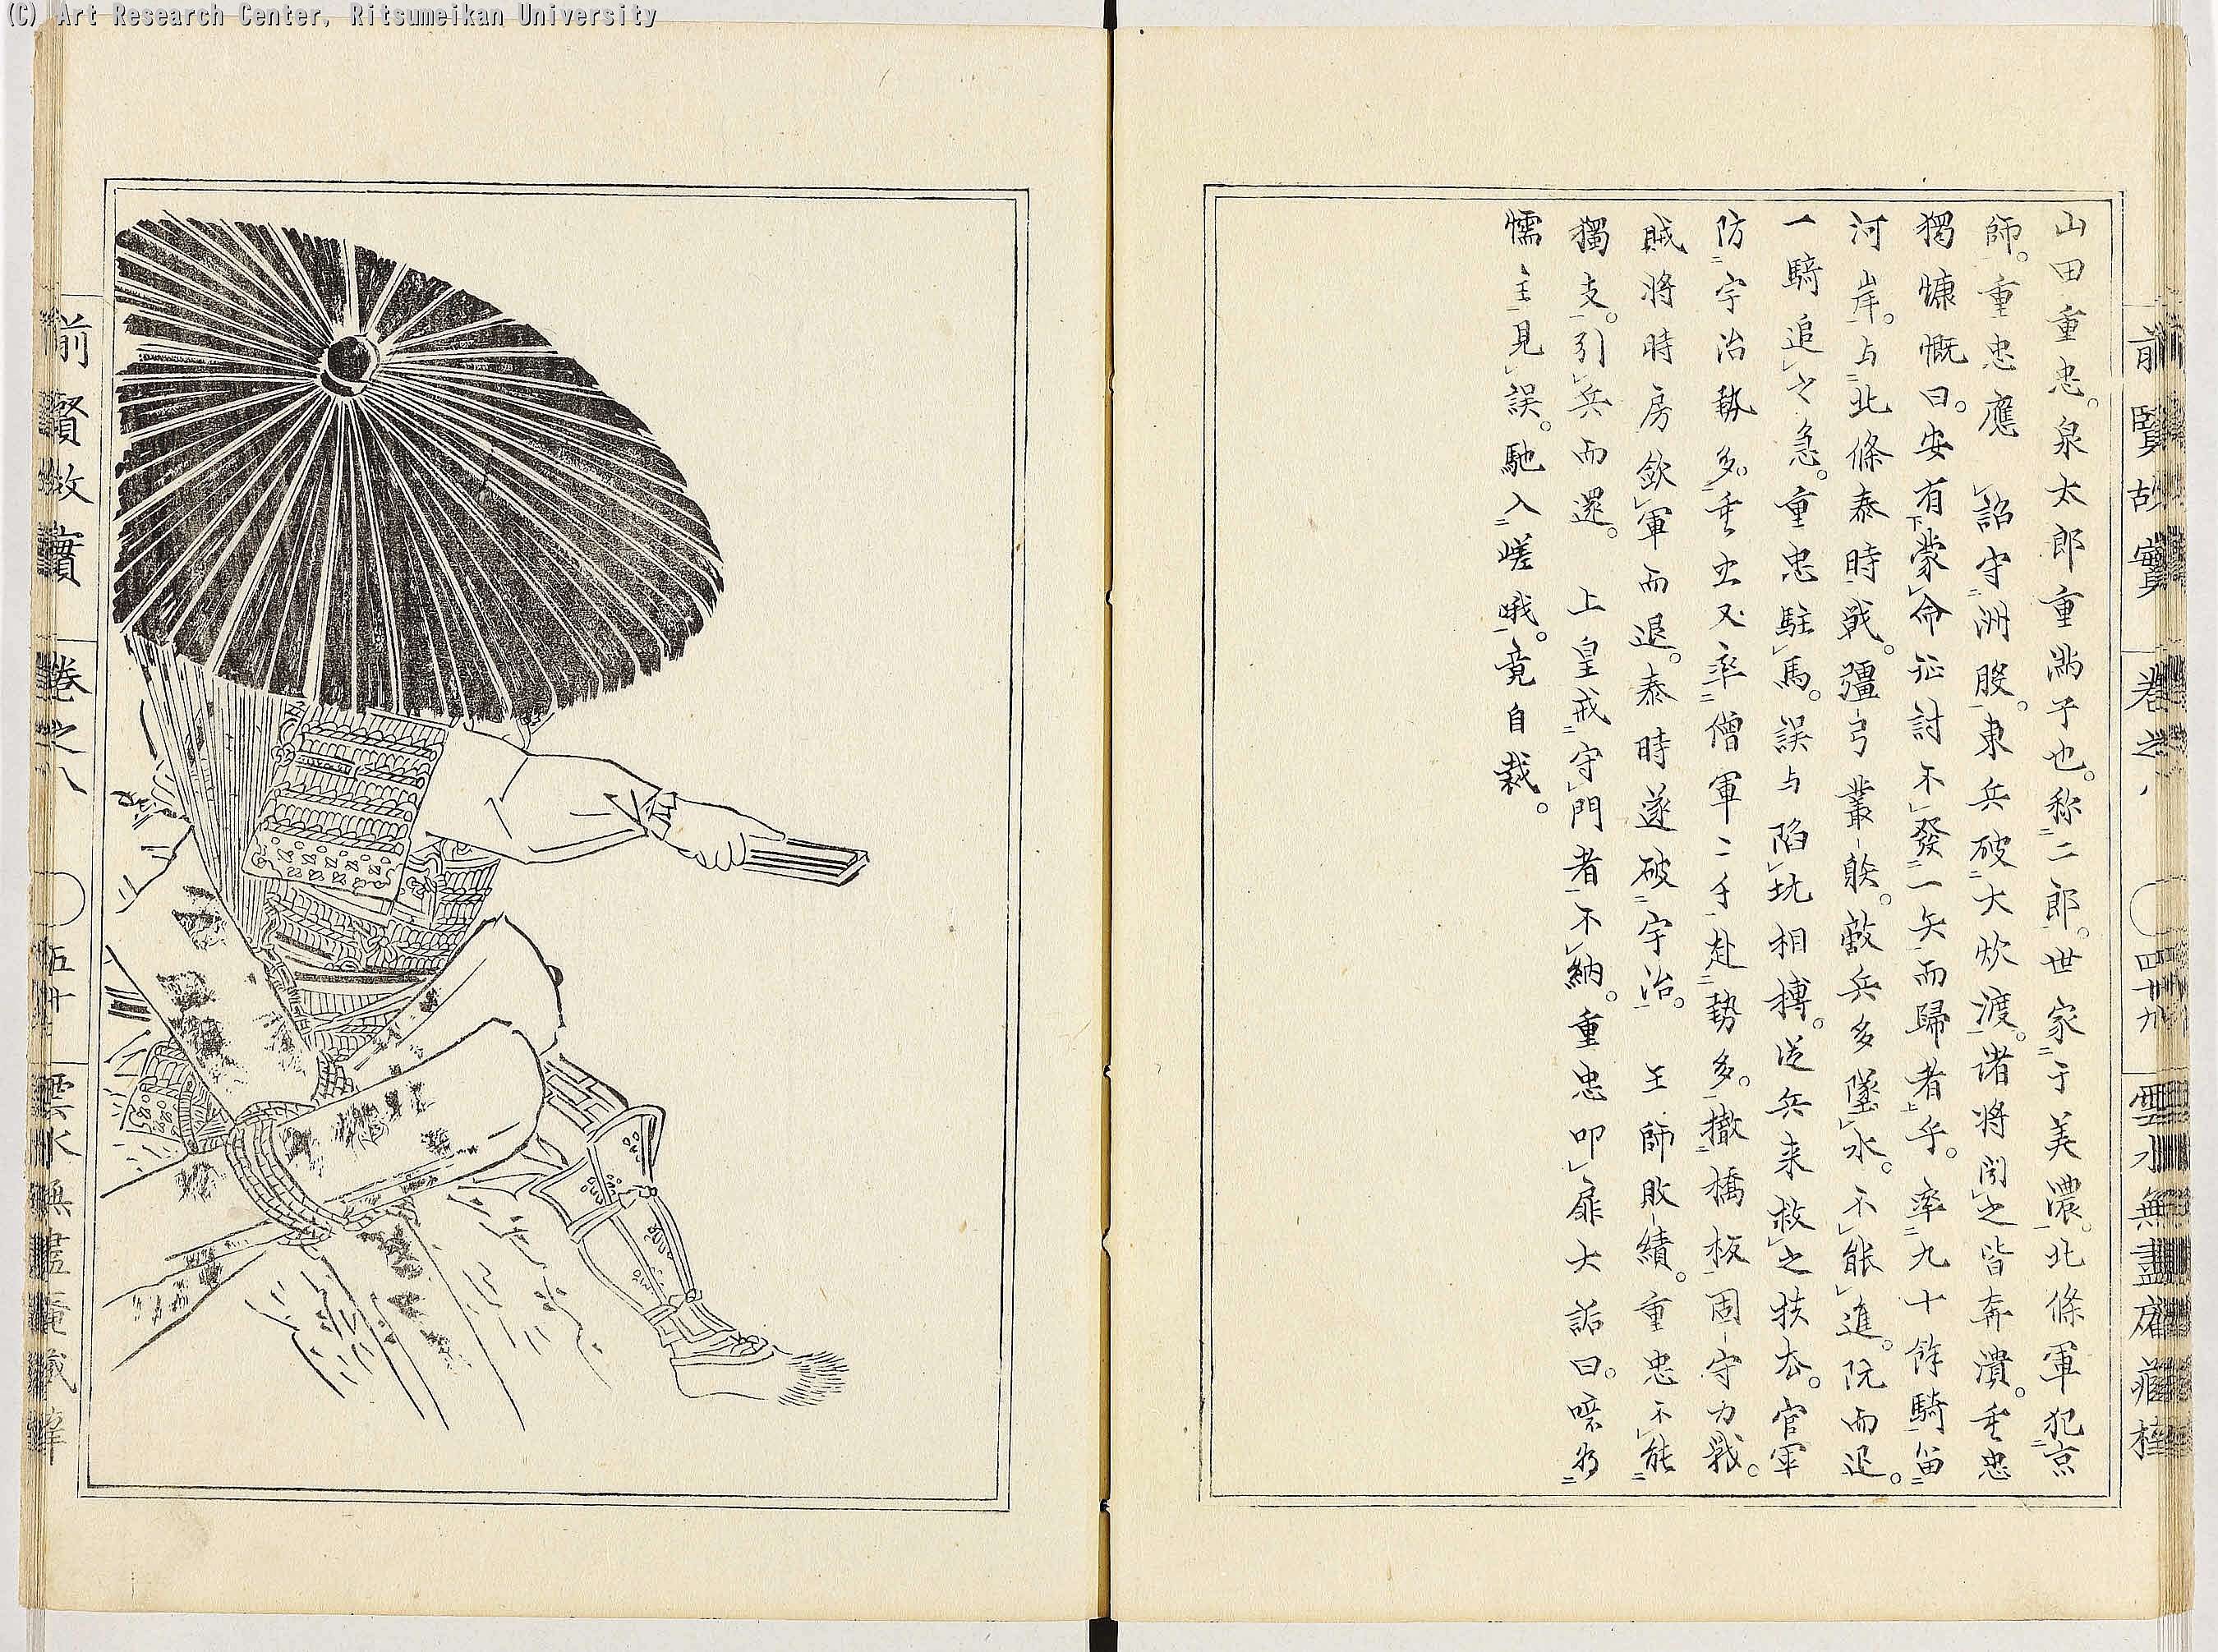 (C) Art Research Center, Ritsumeikan University
前賢故實 卷之八 四十九 雲水無盡庵藏梓
山田重忠。泉太郎重満子也。称二郎。世家于美濃。北條軍犯京
師。重忠應 詔守洲股。東兵破大炊渡。诸将闻之皆奔潰。重忠
獨慷慨曰。安有蒙命征討不發一矢而歸者乎。率九十餘騎留
河岸。与北條泰時戦。彊弓叢射。敵兵多墜水。不能進。阮而退。
一騎追之急。重忠駐馬。誤与陷坑相搏。従兵来救之扶去。官軍
防宇治勢多。重忠又率僧軍二千赴勢多。撤橋板固守力戰。
賊将時房歛軍而退。泰時遂破宇治。 王師敗績。重忠不能
獨支。引兵而還。 上皇戒守門者不納。重忠叩扉大詬曰。噫為
懦主見誤。馳入嵯哦。竟自裁。
前賢故實 卷之八 五十 雲水無盡庵藏梓